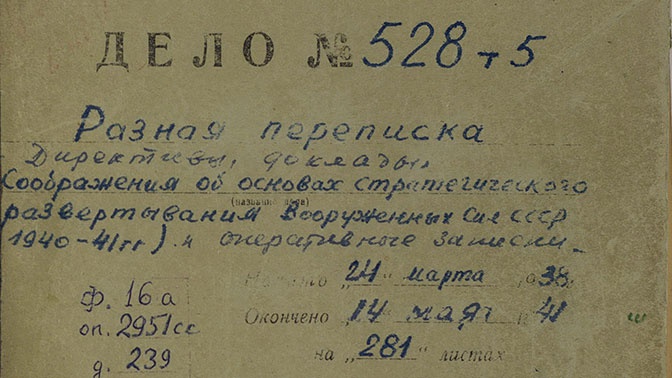 ДЕЛО № 528 т 5
Разная переписка
Директивы, доклады,
Соображения об основах стратегического
(название дела)
развертывания Вооруженных Сил СССР
1940-41гг) и оперативные записки.
Начато „24" марта 1938г
Окончено „14" мая г. 41
на „281" листах
ф. 16а
оп. 2951сс
д. 239